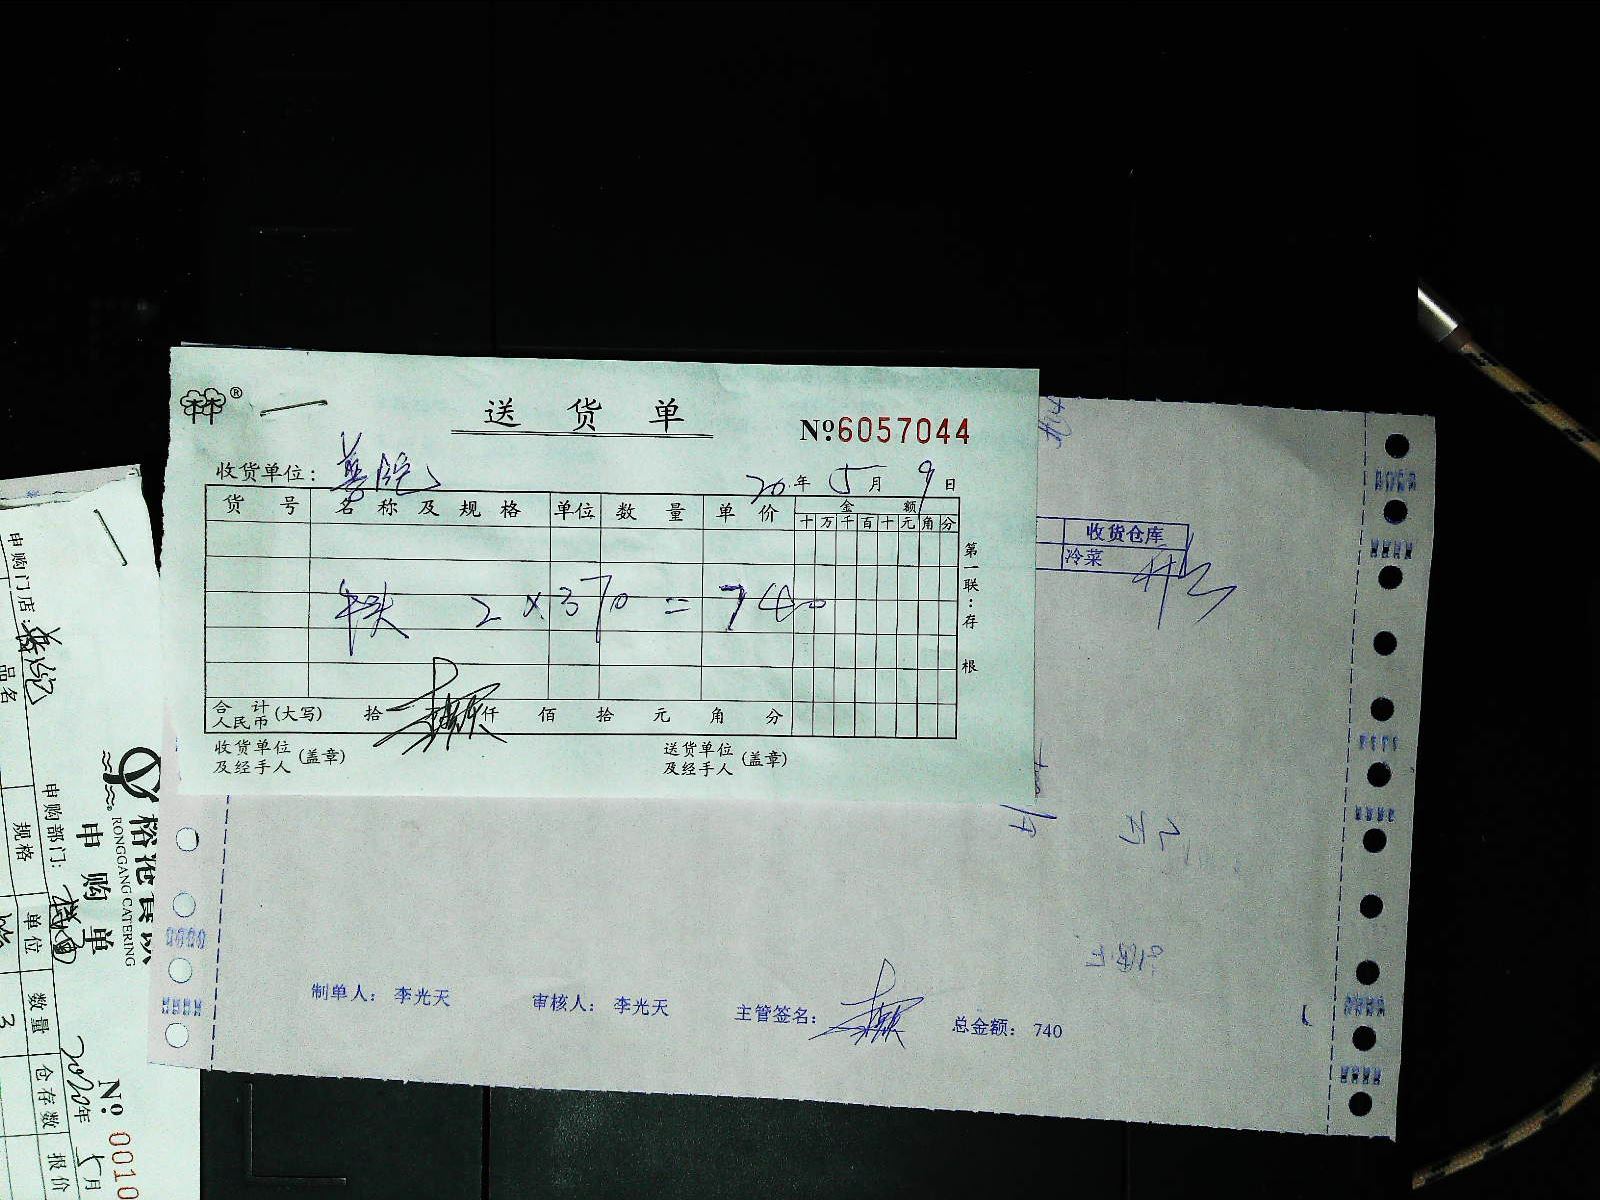 送货单
№6057044
收货单位: 普陀
20年 5月 9日
货号 名称及规格 单位 数量 单价 金额
十万千百十元角分
2 × 370 = 740
合计
人民币(大写) 拾 仟 佰 拾 元 角 分
收货单位
及经手人(盖章)
送货单位
及经手人(盖章)
第一联:存根
收货仓库
冷菜
制单人: 李光天 审核人: 李光天 主管签名: 总金额: 740
RONGGANG CATERING
申购单
№ 0010
申购门店: 普陀 申购部门: 2020年 5月
品名 规格 单位 数量 仓存数 报价
3